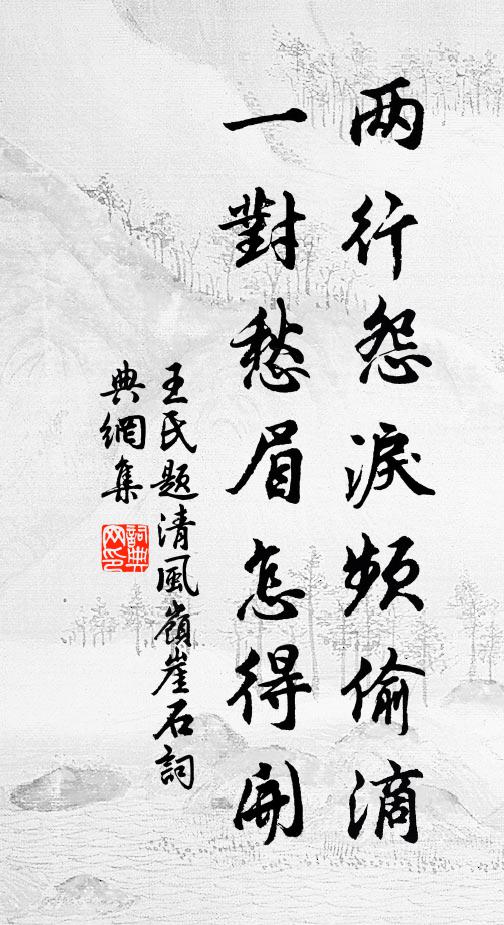 两行怨淚頻偷滴
一對愁眉怎得開
王氏題清風嶺崖石詞
典網集
詞典网印